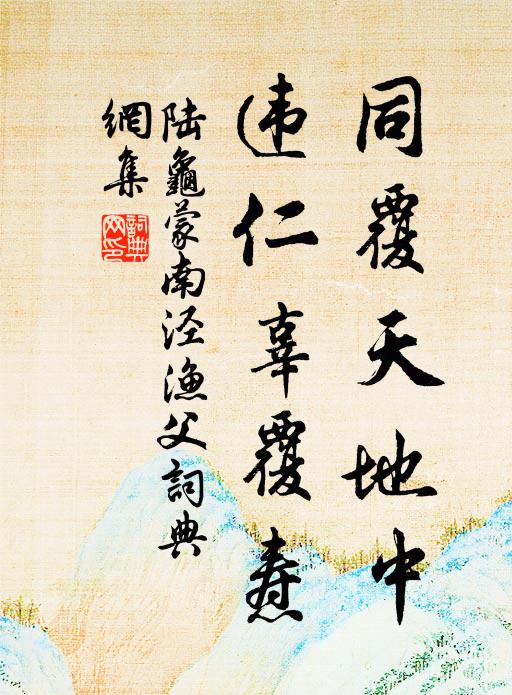 同覆天地中
违仁辜覆焘
陆龜蒙南泾渔父詞典
網集
詞典
网印